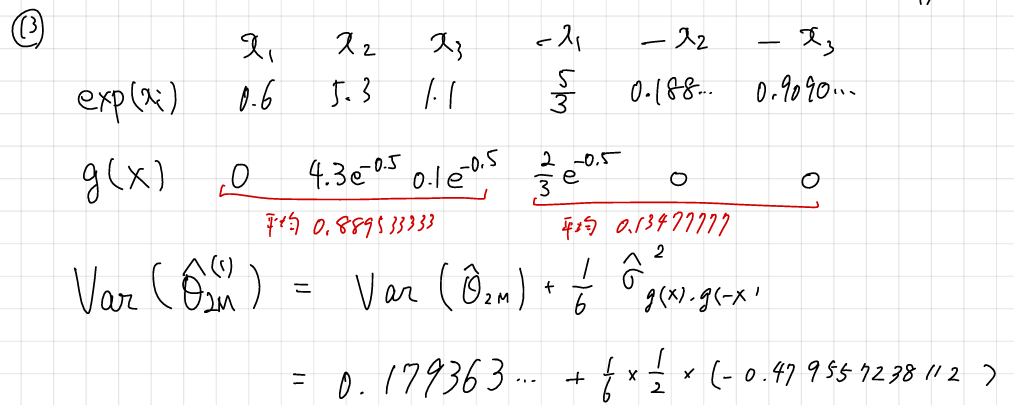 (3)
x₁ x₂ x₃ -x₁ -x₂ -x₃
exp(xᵢ) 0.6 5.3 1.1 5/3 0.188... 0.9090...
g(x) 0 4.3e^{-0.5} 0.1e^{-0.5} 2/3 e^{-0.5} 0 0
平均 0.889533333 平均 0.13477777
Var(θ̂_{2M}^{(1)}) = Var(θ̂_{2M}) + 1/6 σ̂²_{g(x),g(-x)}
= 0.179363... + 1/6 × 1/2 × (-0.479557238112)